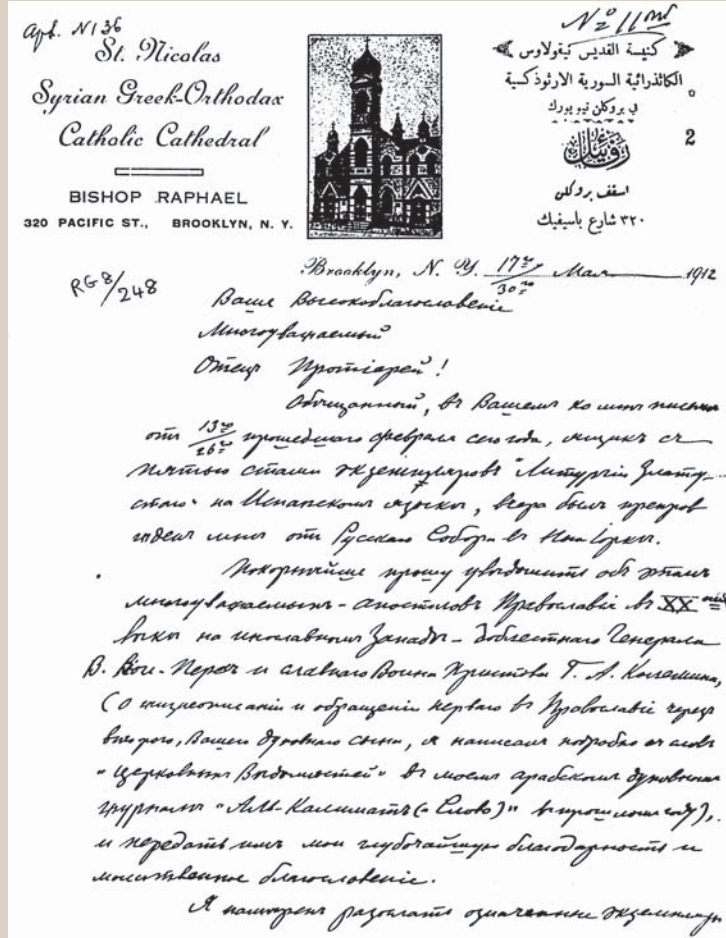 Арв. N136
№ 11
St. Nicolas
Syrian Greek-Orthodox
Catholic Cathedral
BISHOP RAPHAEL
320 PACIFIC ST., BROOKLYN, N. Y.
كنيسة القديس نيقولاوس
الكاتدرائية السورية الارثوذكسية
في بروكلن نيويورك
رفائيل
2
اسقف بروكلن
٣٢٠ شارع باسيفيك
Brooklyn, N. Y. 17го/30го Мая 1912
RG8/248
Ваше Высокоблагословеніе
Многоуважаемый
Отецъ Протіерей!
Обѣщанный, въ Вашемъ ко мнѣ письмѣ
отъ 13го/26го прошедшаго февраля сего года, ящикъ съ
пятью стами экземпляровъ "Литургіи Злато-
стаго" на Испанскомъ языкѣ, вчера былъ препров
жденъ мнѣ отъ Русскаго Собора въ Нью Іоркѣ.
Покорнѣйше прошу увѣдомить объ этомъ
многоуважаемыхъ - апостоловъ Православія въ XX
вѣкѣ на инославномъ Западѣ - доблестнаго Генерала
В. - Перскъ и славнаго Воина Христова Г. А. Колемина,
(О жизнеописаніи и обращеніи перваго въ Православіе черезъ
второго, Вашего духовнаго сына, я написалъ подробно съ словъ
"Церковныхъ Вѣдомостей" въ моемъ арабскомъ духовномъ
журналѣ "Аль-Калиматъ (= Слово)" въ прошломъ году),
и передать имъ мою глубочайшую благодарность и
молитвенное благословеніе.
Я намѣренъ разослать означенные экземпляры